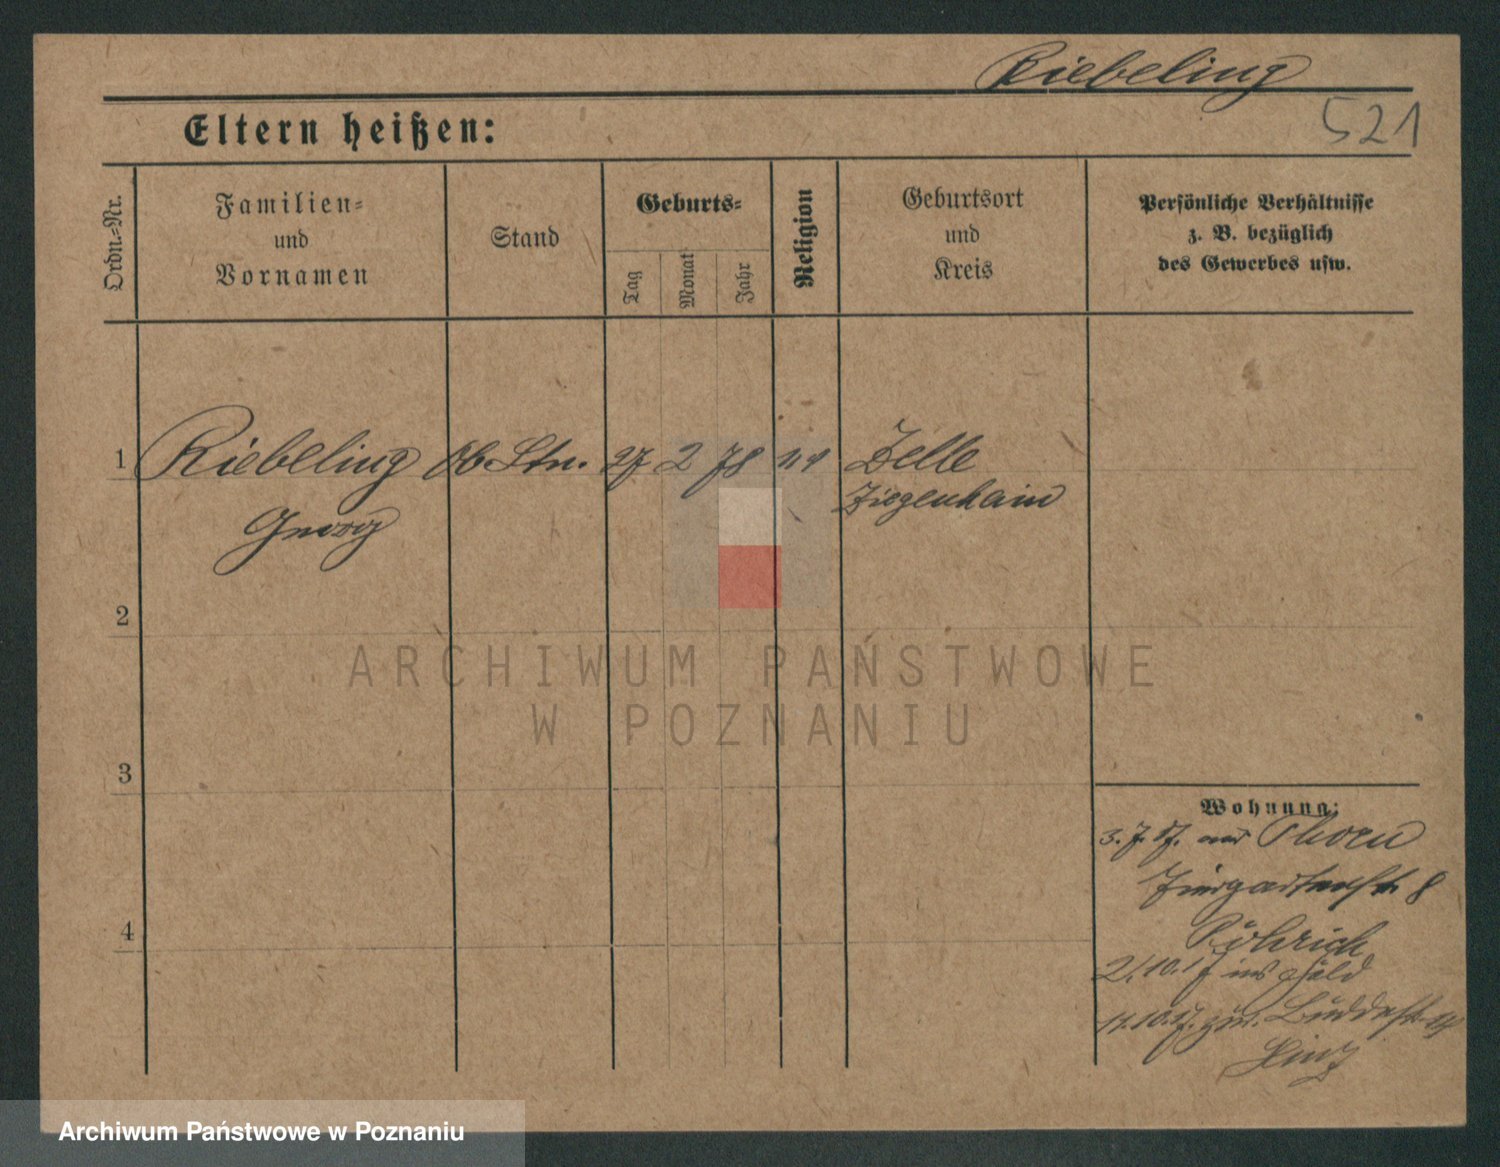 Riebeling
521
Eltern heißen:
Ordn.-Nr.
Familien-
und
Vornamen
Stand
Geburts-
Tag
Monat
Jahr
Religion
Geburtsort
und
Kreis
Persönliche Verhältnisse
z. B. bezüglich
des Gewerbes usw.
1 Riebeling Ob. Ltn. 27 2 78 Zelle
Georg Ziegenhain
2
3
4
Wohnung:
3. 7. 17. aus Thorn
8
Röhrich
2. 10. 17 ins Feld
11. 10. 17. zur. Buddestr. 14
Hinz
ARCHIWUM PAŃSTWOWE
W POZNANIU
Archiwum Państwowe w Poznaniu